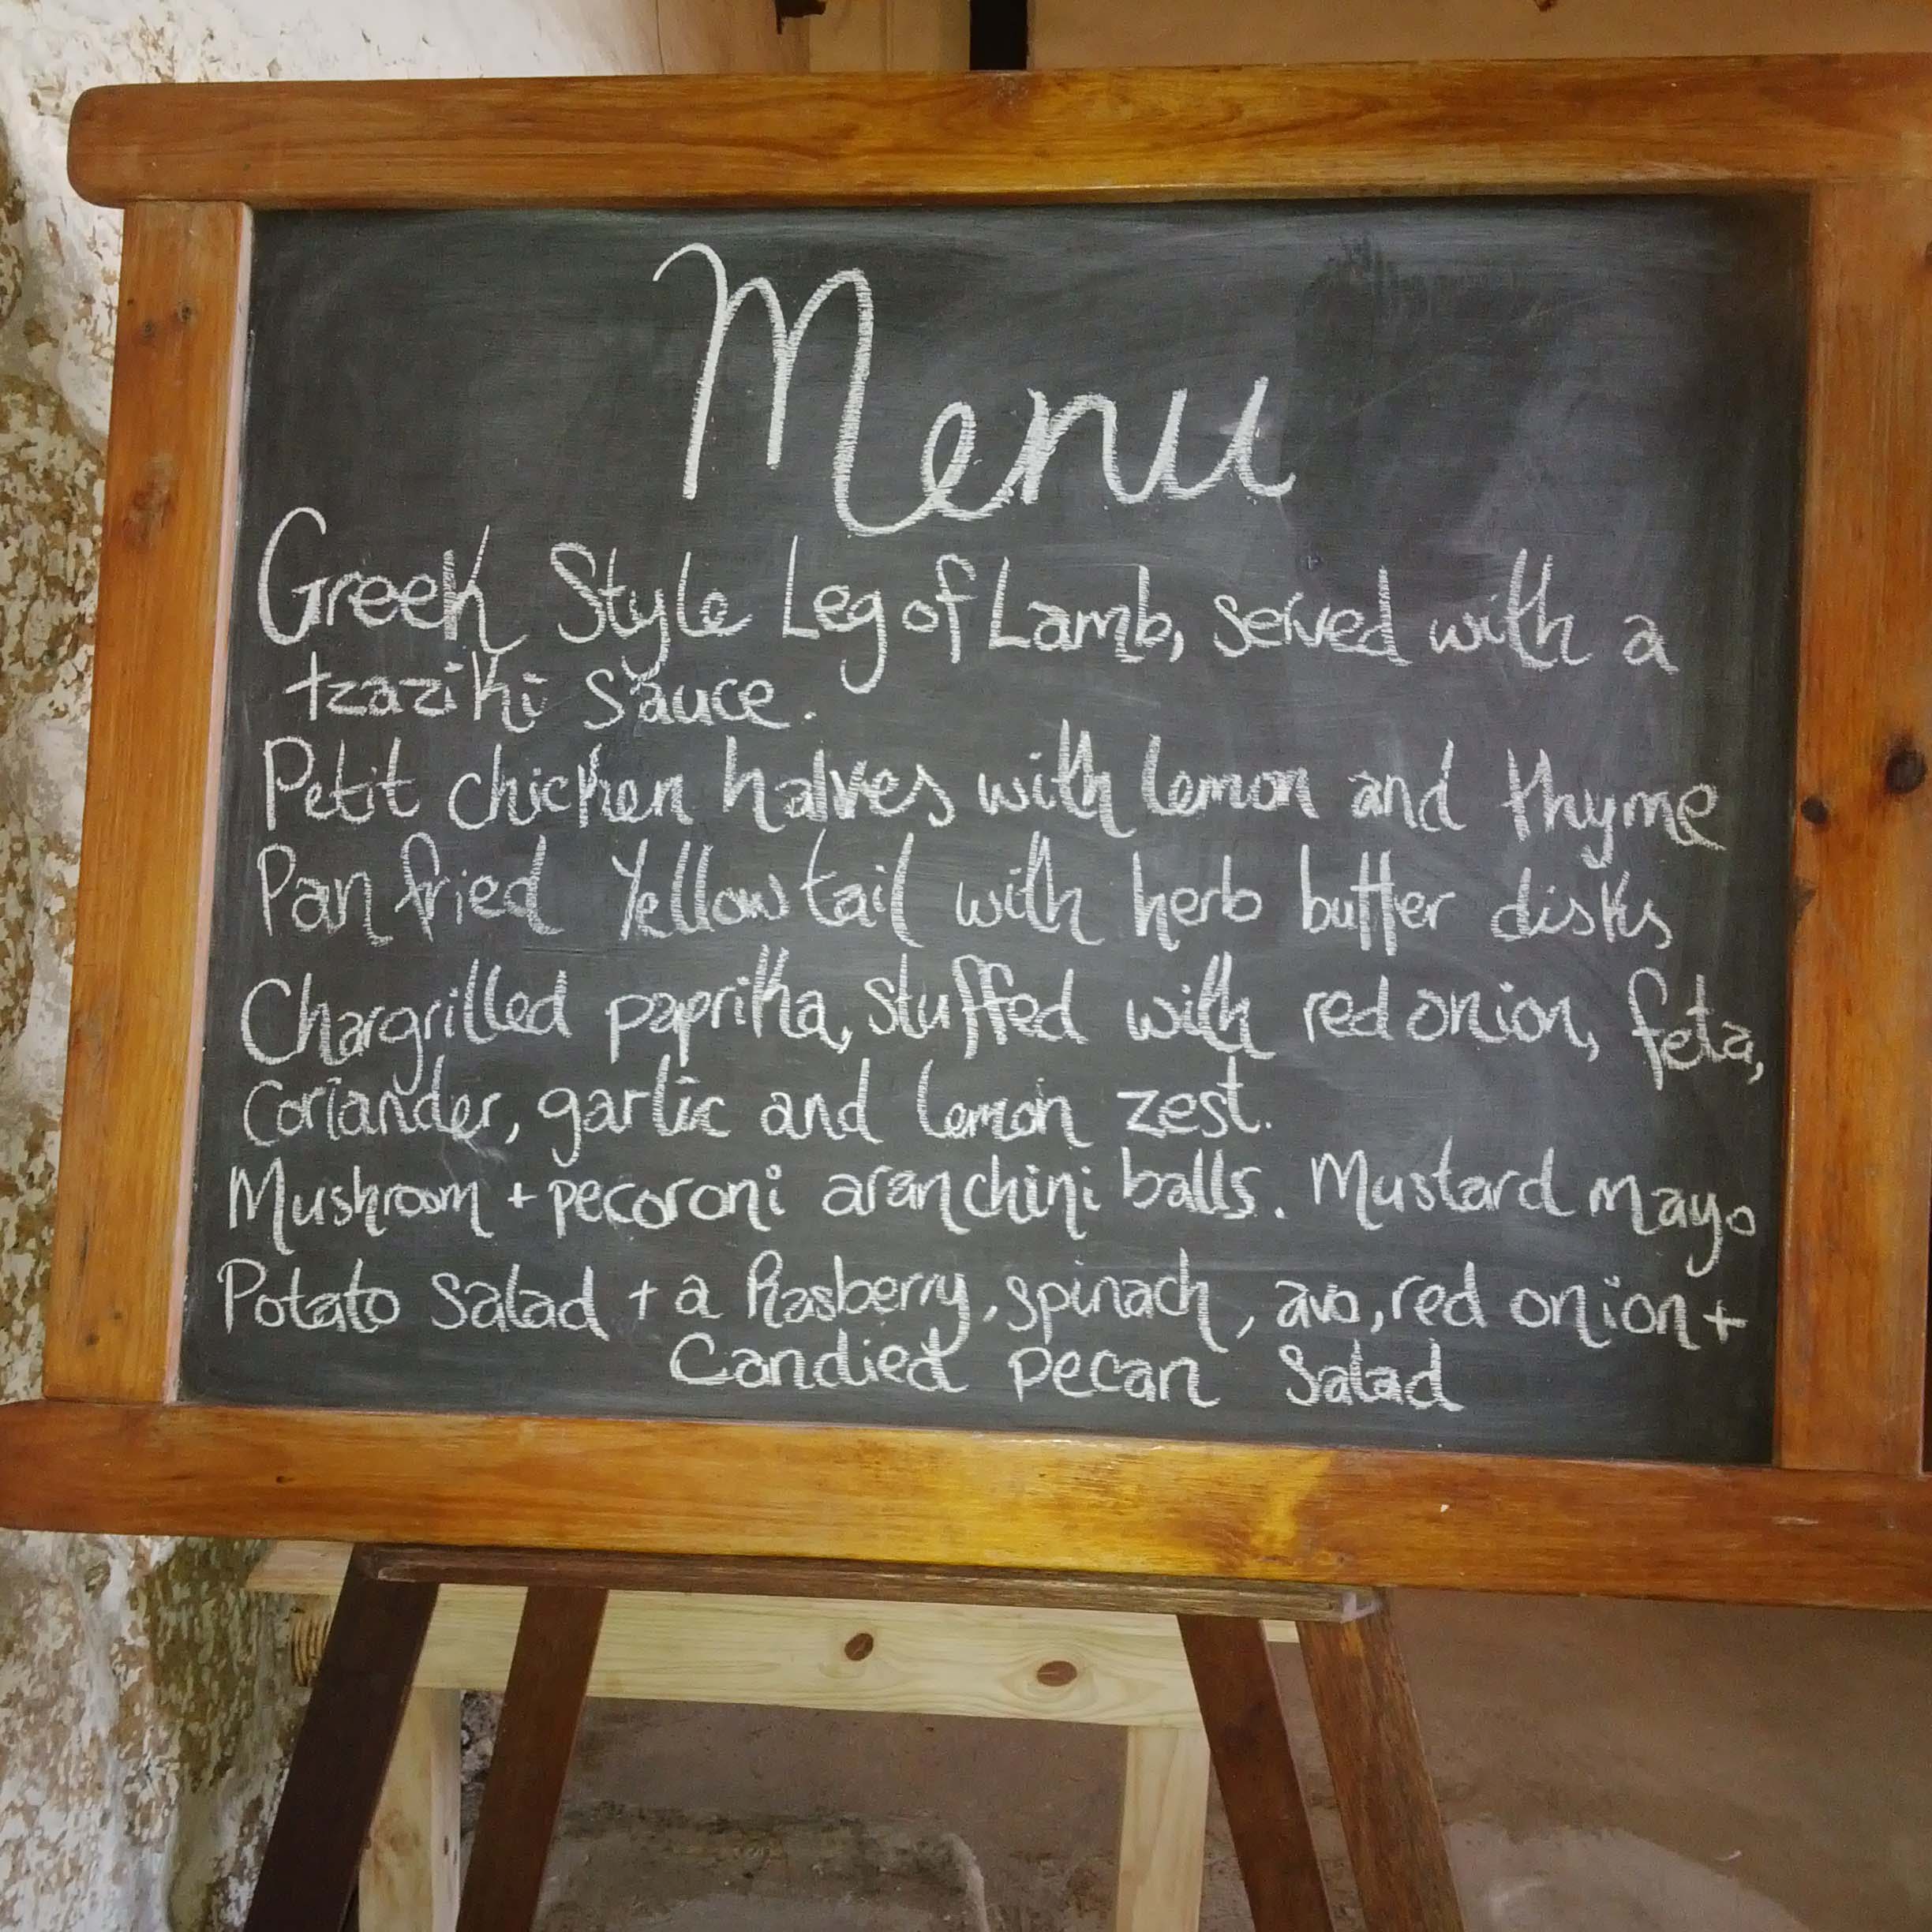 Menu
Greek Style Leg of Lamb, served with a
tzaziki sauce.
Petit chicken halves with lemon and thyme
Pan fried Yellow tail with herb butter disks
Chargrilled paprika, stuffed with red onion, feta,
Coriander, garlic and lemon zest.
Mushroom + pecoroni aranchini balls. Mustard mayo
Potato Salad + a Rasberry, spinach, avo, red onion +
Candied pecan Salad